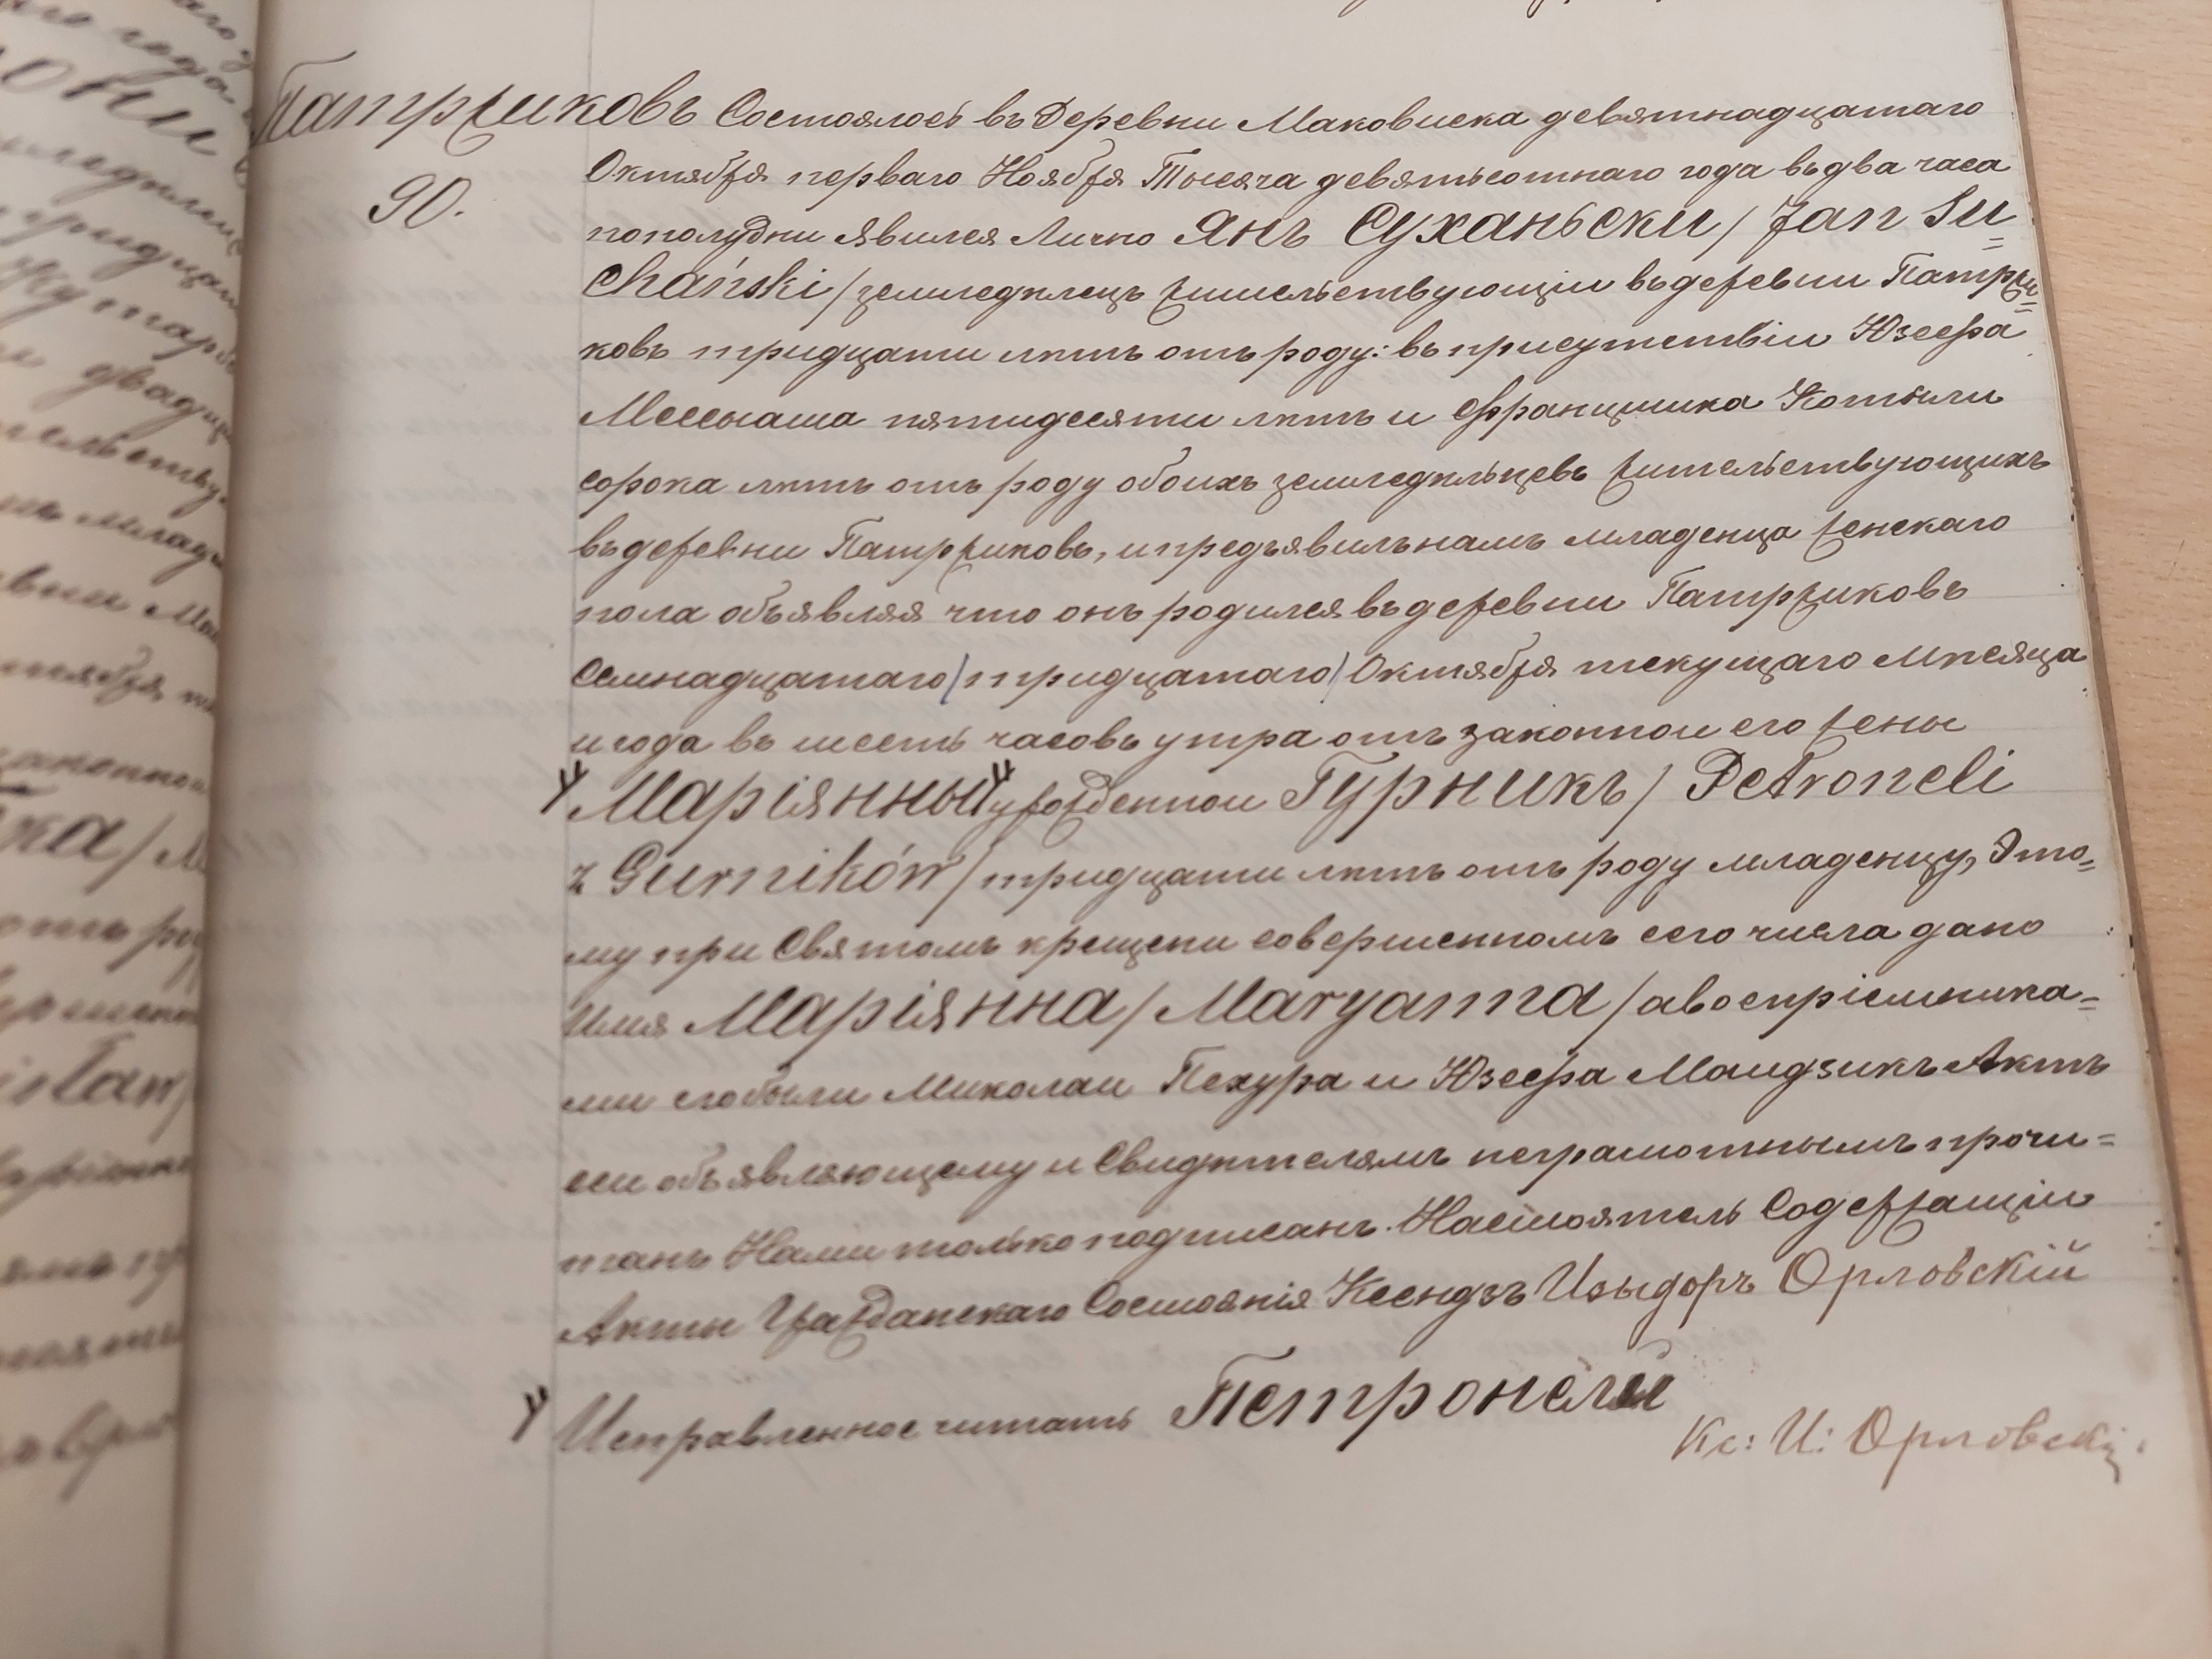 Патржиковъ Состоялось въ Деревни Маковиска девятнадцатаго
90.
Октября перваго Ноября Тысяча девятьсотнаго года въ два часа
пополудни явился Лично Янъ Суханьски / Jan Su=
chański / земледѣлецъ жительствующіи въ деревни Патржи=
ковъ тридцати лѣтъ отъ роду: въ присутствіи Юзефа
пятидесяти лѣтъ и Францишка Котыли
сорока лѣтъ отъ роду обоихъ земледѣльцевъ жительствующихъ
въ деревни Патржиковъ, и предъявилъ намъ младенца женскаго
пола объявляя что онъ родился въ деревни Патржиковъ
Семнадцатаго / тридцатаго / Октября текущаго мѣсяца
и года въ шесть часовъ утра отъ законнои его жены
Маріянны урожденнои Гурникъ / Petroneli
z Gurników / тридцати лѣтъ отъ роду младенцу, Это=
му при Святомъ крещени совершенномъ сего числа дано
Имя Маріянна / Maryanna / а воспріемника=
ми его были Миколаи Пехура и Юзефа Маидзикъ Актъ
сеи объявляющему и Свидѣтелямъ неграмотнымъ прочи=
танъ Нами только подписанъ. Настоятель Содержащіи
Акты Гражданскаго Состоянія Ксендзъ Изыдоръ Орловскій
Исправленное читать Петронели
Кс: И: Орловскі